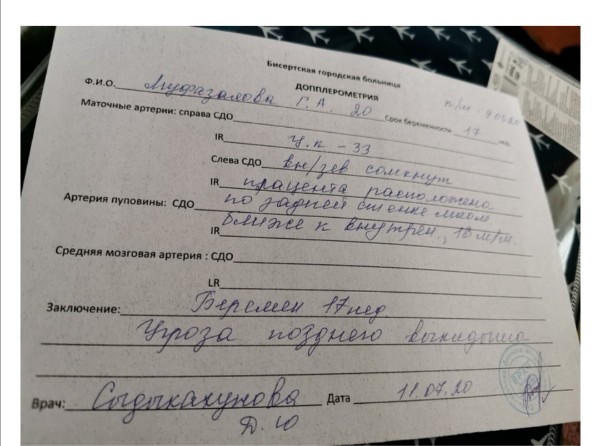 Бисертская городская больница
ДОППЛЕРОМЕТРИЯ
Ф.И.О. Муфазалова Г. А. 20 п/м 9.03.20
Маточные артерии: справа СДО Срок беременности 17 нед.
IR ц.к - 33
Слева СДО вн/зев сомкнут
IR плацента расположена
Артерия пуповины: СДО по задней стенке
IR ближе к внутрен., 18 м/м.
Средняя мозговая артерия : СДО
LR
Заключение: Беремен 17 нед
Угроза позднего выкидыша
Врач: Сыдыкакунова Дата 11.07.20
Д. Ю